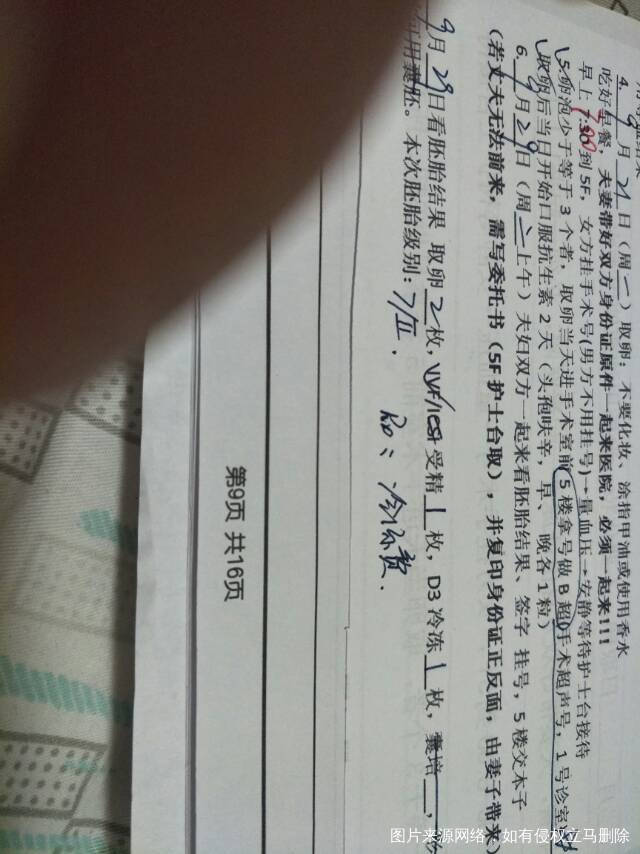 4. 9 月 21 日（周二）取卵：不要化妆、涂指甲油或使用香水
吃好早餐，夫妻带好双方身份证原件一起来医院，必须一起来!!!
早上 7:30 到 5F，女方挂手术号(男方不用挂号)→量血压→安静等待护士台接待
5.卵泡少于等于 3 个者，取卵当天进手术室前 5 楼拿号做 B 超(手术超声号，1 号诊室
取卵后当日开始口服抗生素 2 天（头孢呋辛，早、晚各 1 粒）
6. 9 月 29 日（周二上午）夫妇双方一起来看胚胎结果、签字 挂号，5 楼交本子
（若丈夫无法前来，需写委托书（5F 护士台取），并复印身份证正反面，由妻子带来）
9 月 29 日看胚胎结果 取卵 2 枚，IVF/ICSI 受精 1 枚，D3 冷冻 1 枚，囊培
可用囊胚。本次胚胎级别：7/II.
冷冻费.
第9页 共16页
图片来源网络，如有侵权立马删除